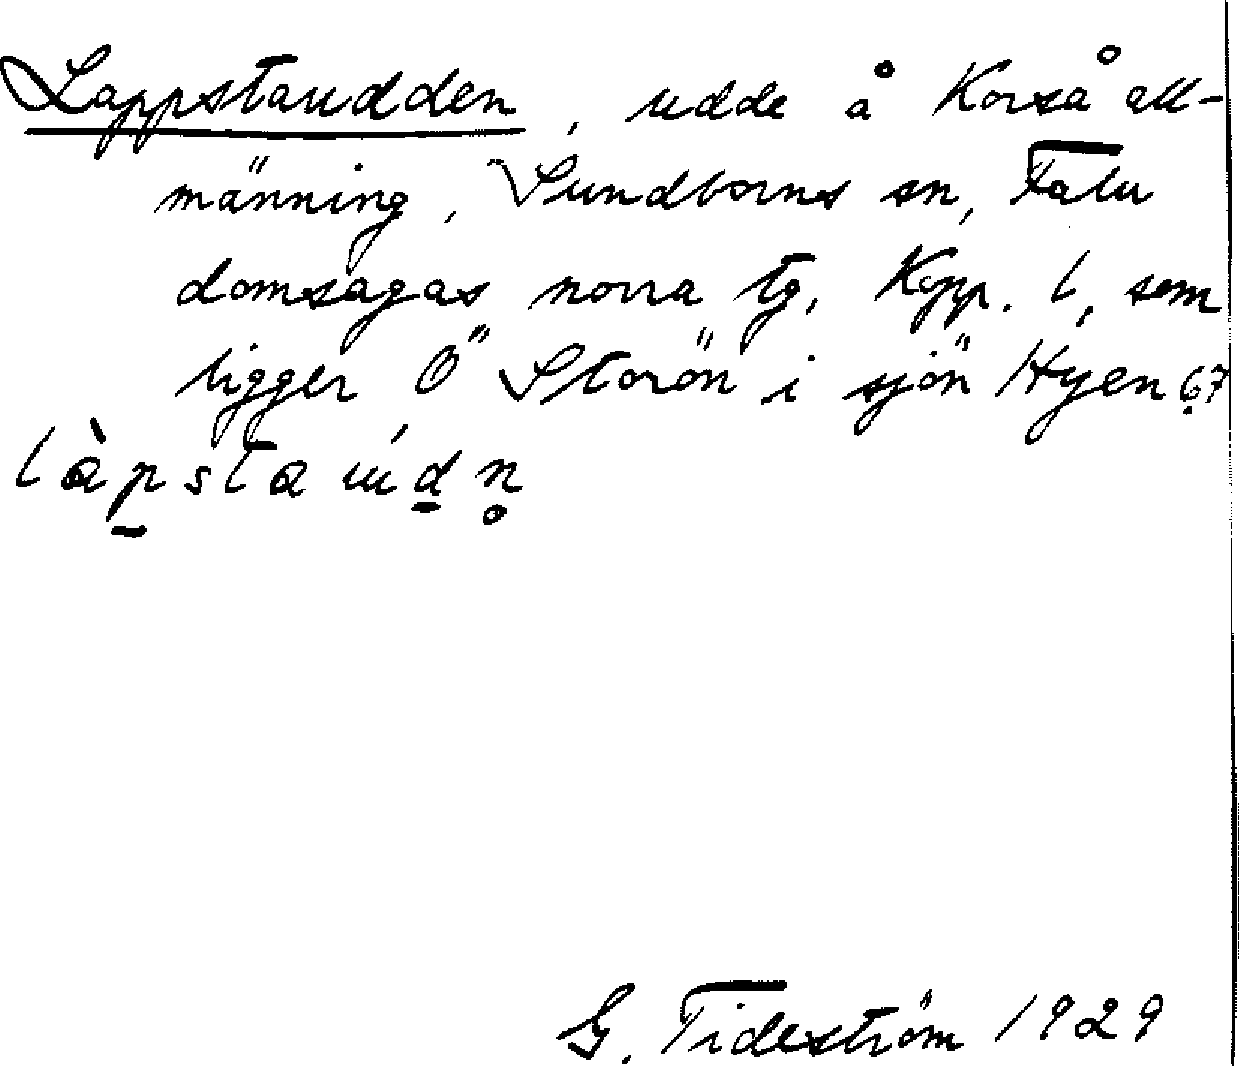 Lappstaudden, udde å Korså all-
männing, Sundborns sn, Falu
domsagas norra tg, Kopp. l, som
ligger Ö Storön i sjön Hyen 67
làp̱sta úḏn̥
G. Tideström 1929